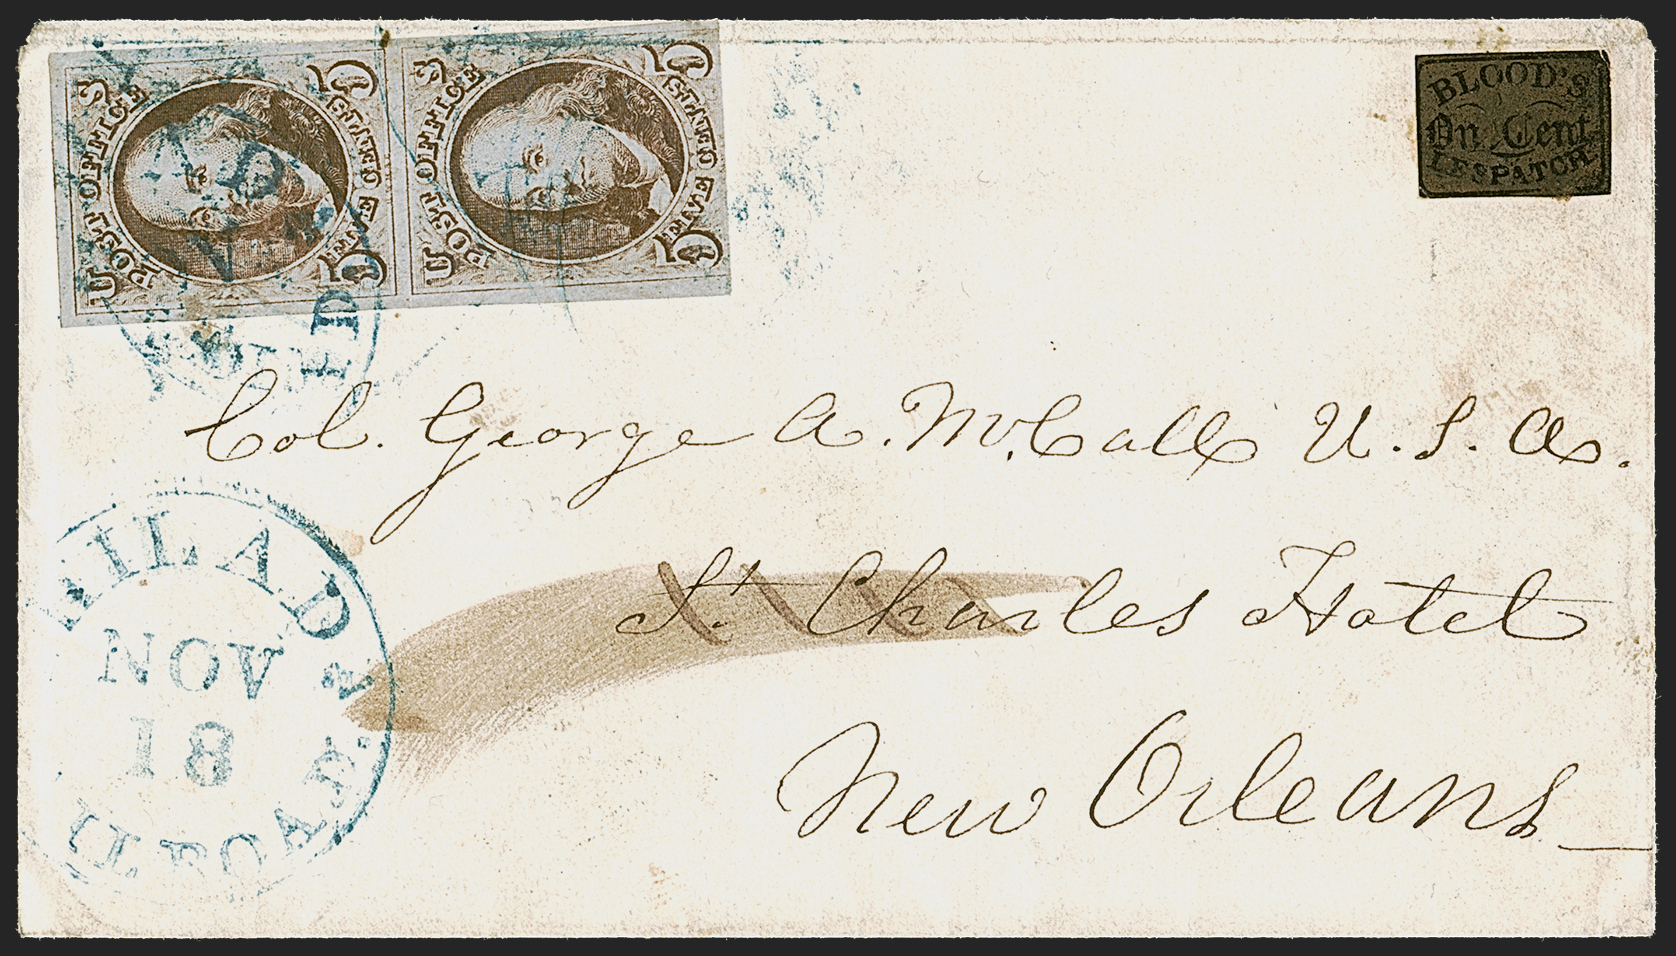 POST OFFICE
FIVE CENTS
U S
5 5
POST OFFICE
FIVE CENTS
U S
5 5
BLOOD'S
On Cent
DESPATCH
Col. George A. McCall U. S. A.
St. Charles Hotel
New Orleans
PHILAD
NOV
18